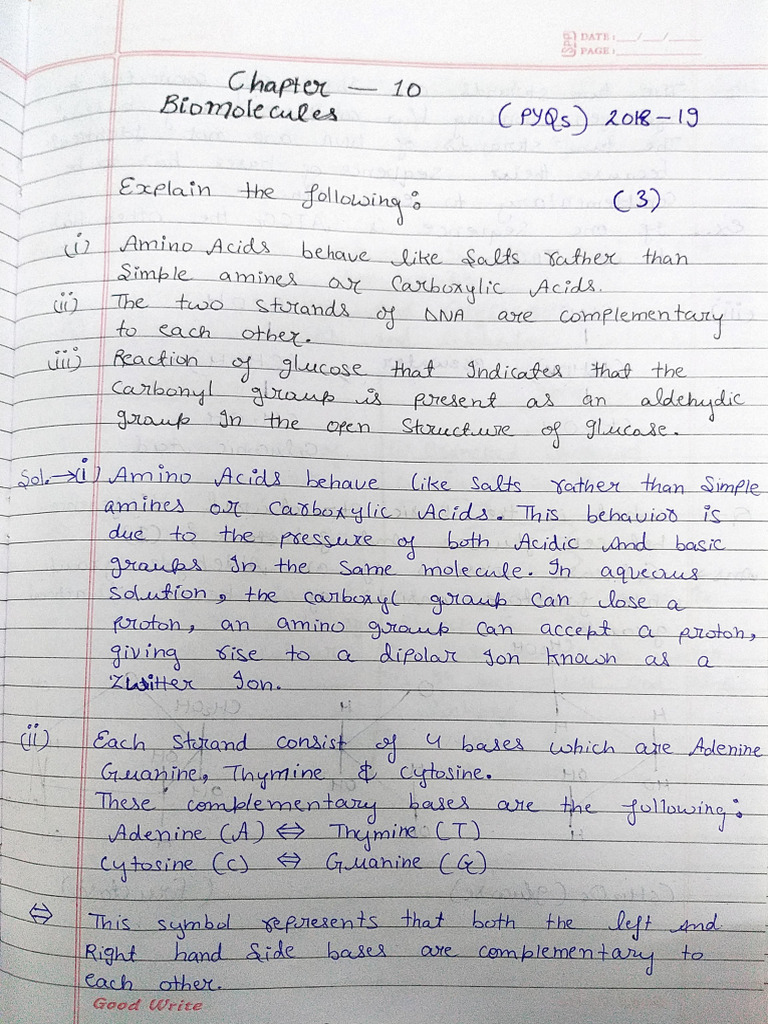 SPP DATE: __/__/__
PAGE: ______
Chapter — 10
Biomolecules
(PYQs) 2018-19
Explain the following: (3)
(i) Amino Acids behave like Salts rather than
Simple amines or Carboxylic Acids.
(ii) The two strands of DNA are complementary
to each other.
(iii) Reaction of glucose that Indicates that the
Carbonyl group is present as an aldehydic
group In the open Structure of glucose.
Sol.→(i) Amino Acids behave like Salts rather than Simple
amines or Carboxylic Acids. This behavior is
due to the pressure of both Acidic and basic
groups In the Same molecule. In aqueous
Solution, the carboxyl group can lose a
proton, an amino group can accept a proton,
giving rise to a dipolar Ion known as a
Zwitter Ion.
(ii) Each strand consist of 4 bases which are Adenine
Guanine, Thymine & Cytosine.
These complementary bases are the following:
Adenine (A) ⇔ Thymine (T)
Cytosine (C) ⇔ Guanine (G)
⇔ This symbol represents that both the left and
Right hand Side bases are complementary to
each other.
Good Write